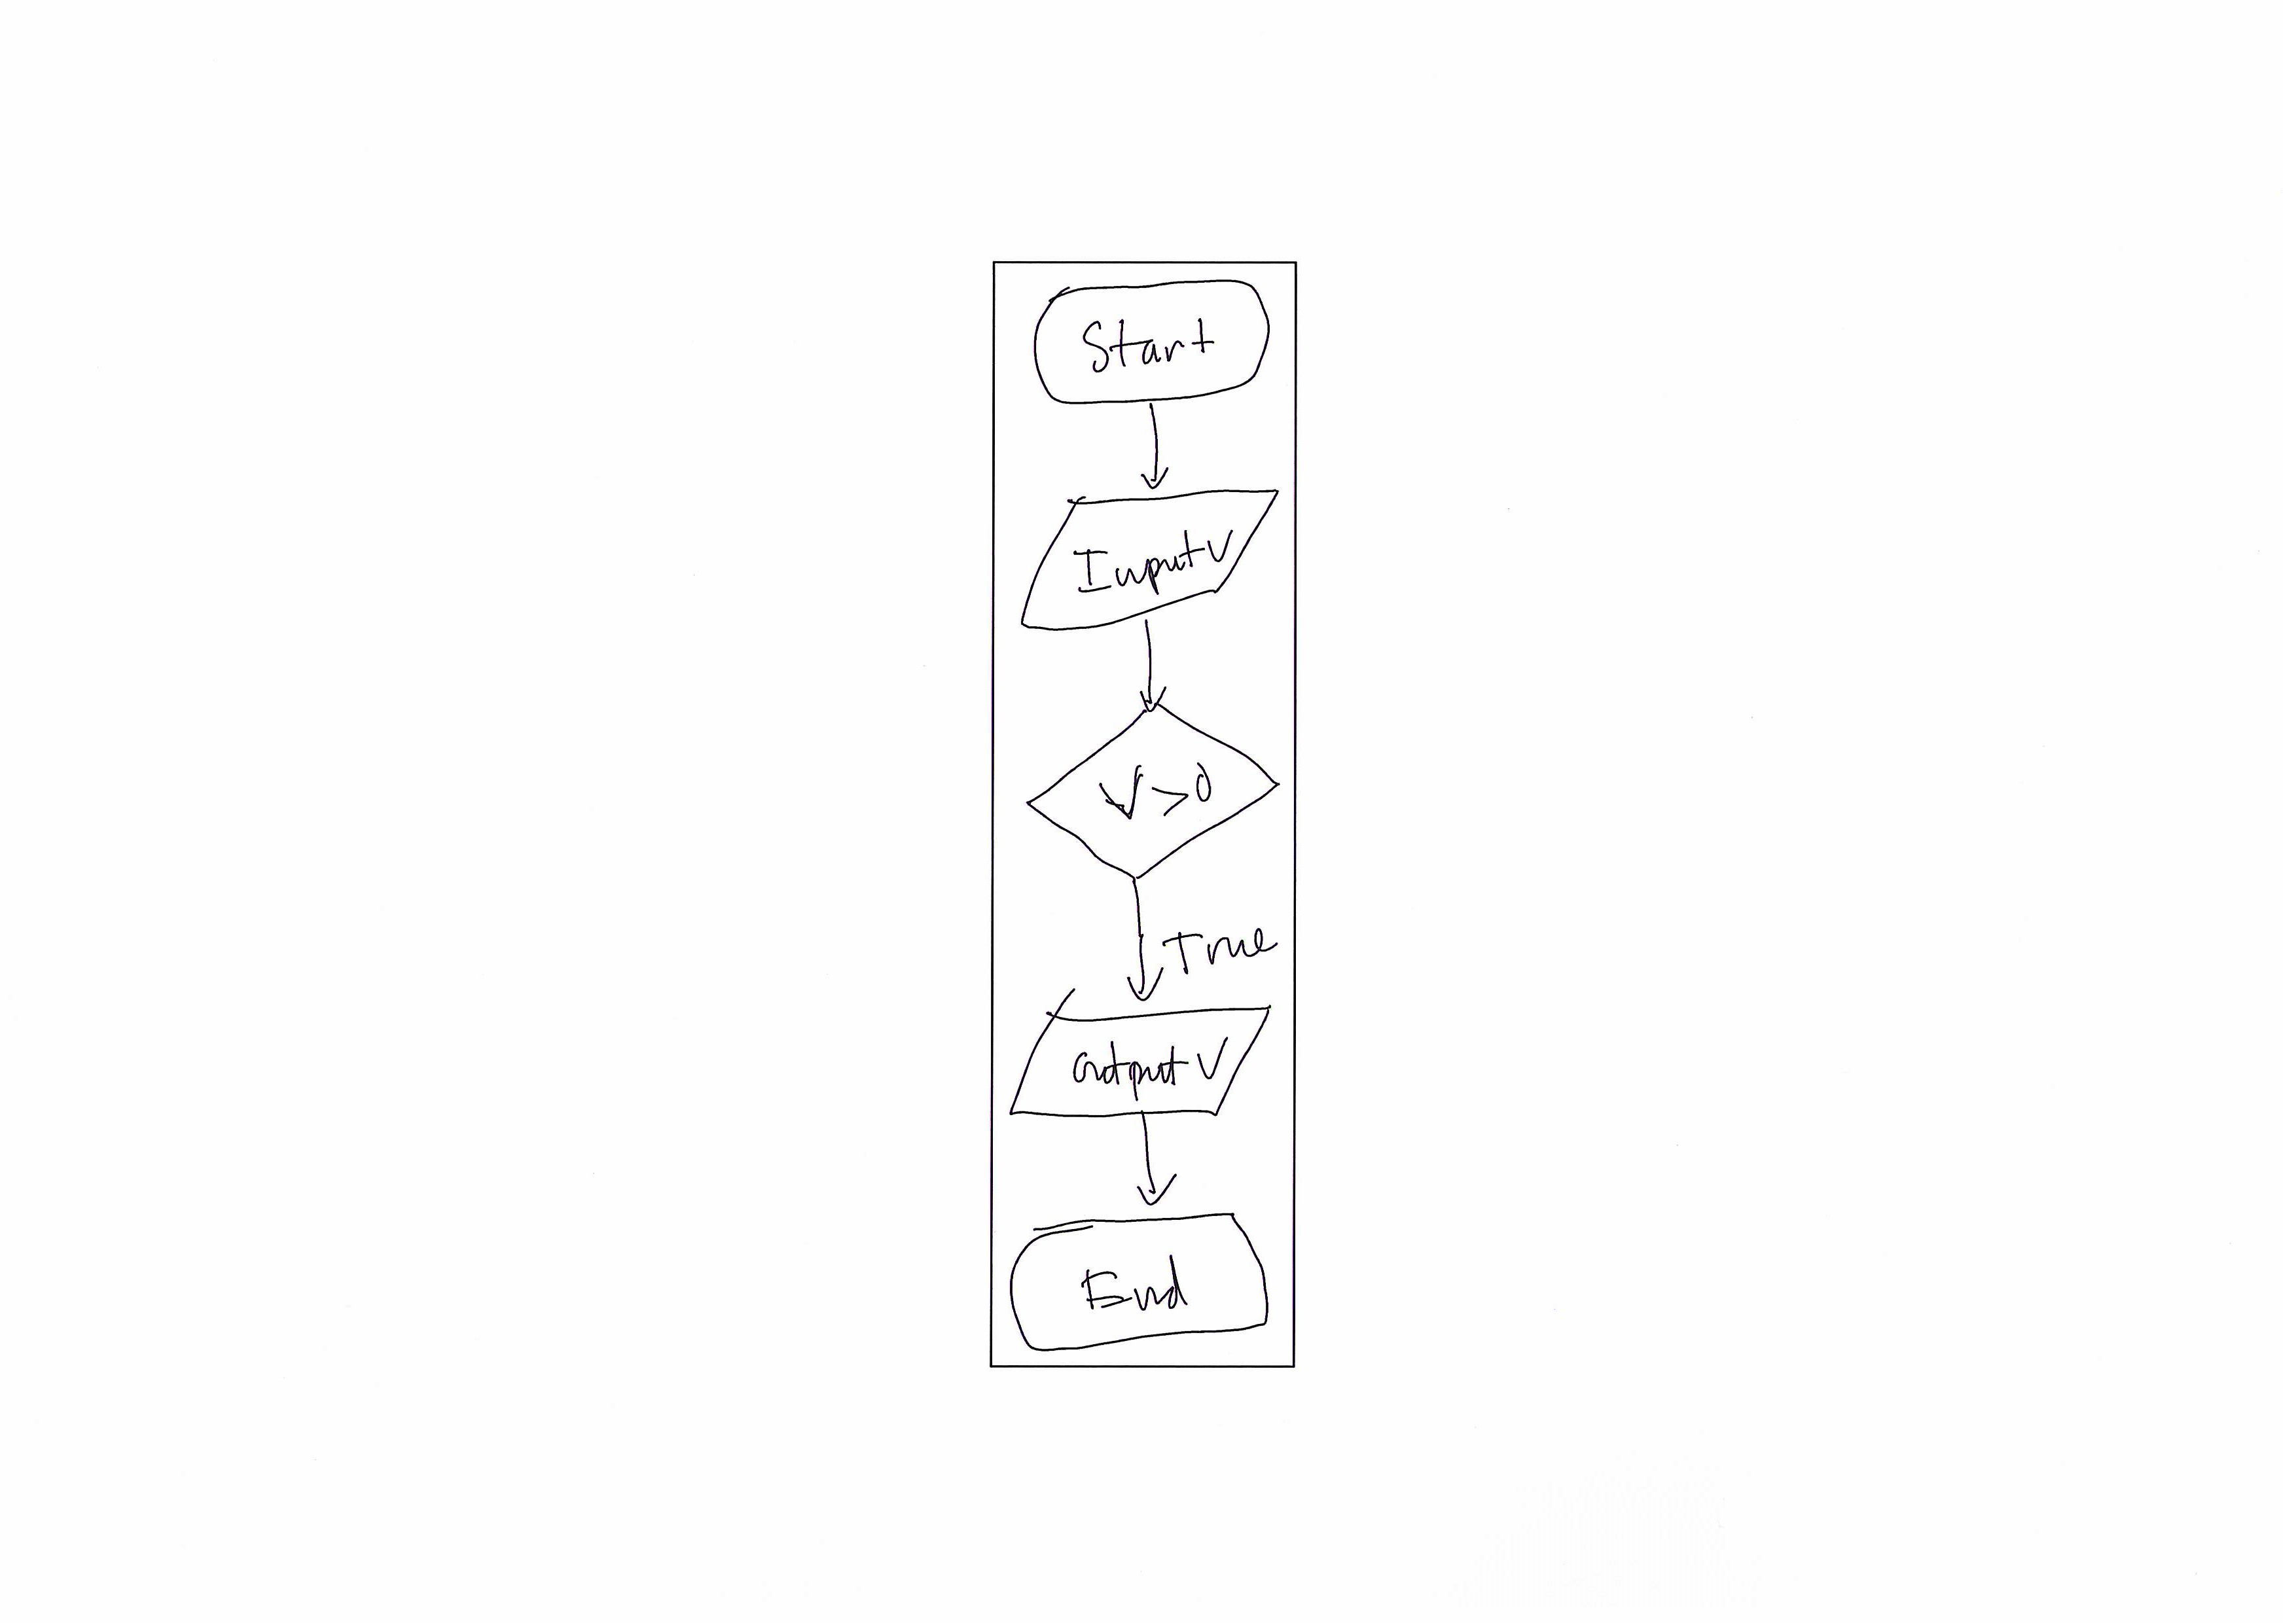 Start
Input V
V > 0
True
output V
End